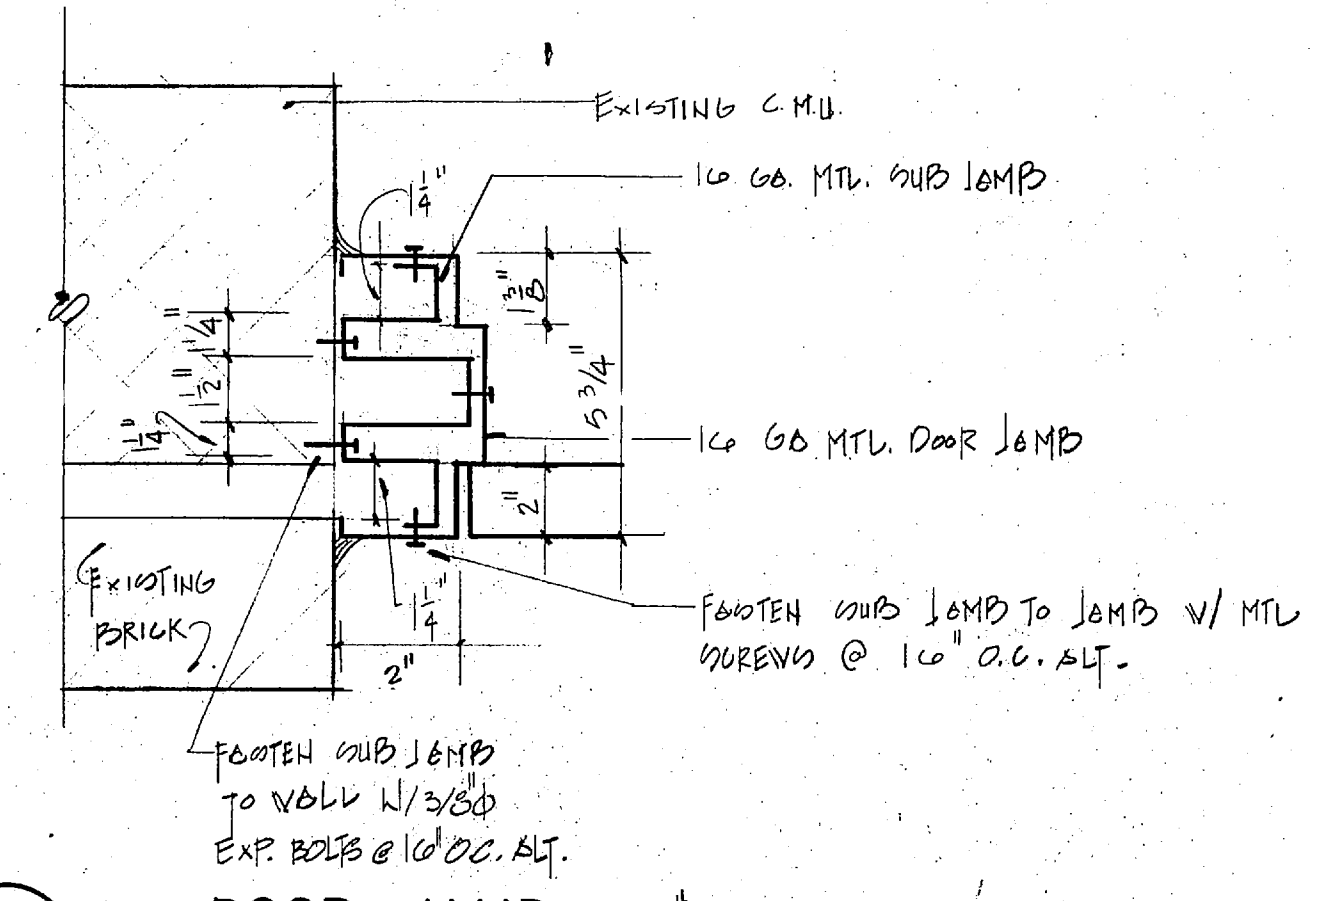 EXISTING C.M.U.
16 GA. MTL. SUB JAMB
1 1/4"
1 3/8"
5 3/4"
1 1/4"
1 1/2"
1 1/4"
16 GA MTL. DOOR JAMB
2"
EXISTING
BRICK
1 1/4"
2"
FASTEN SUB JAMB TO JAMB W/ MTL
SCREWS @ 16" O.C. ALT.
FASTEN SUB JAMB
TO WALL W/ 3/8"Φ
EXP. BOLTS @ 16" O.C. ALT.